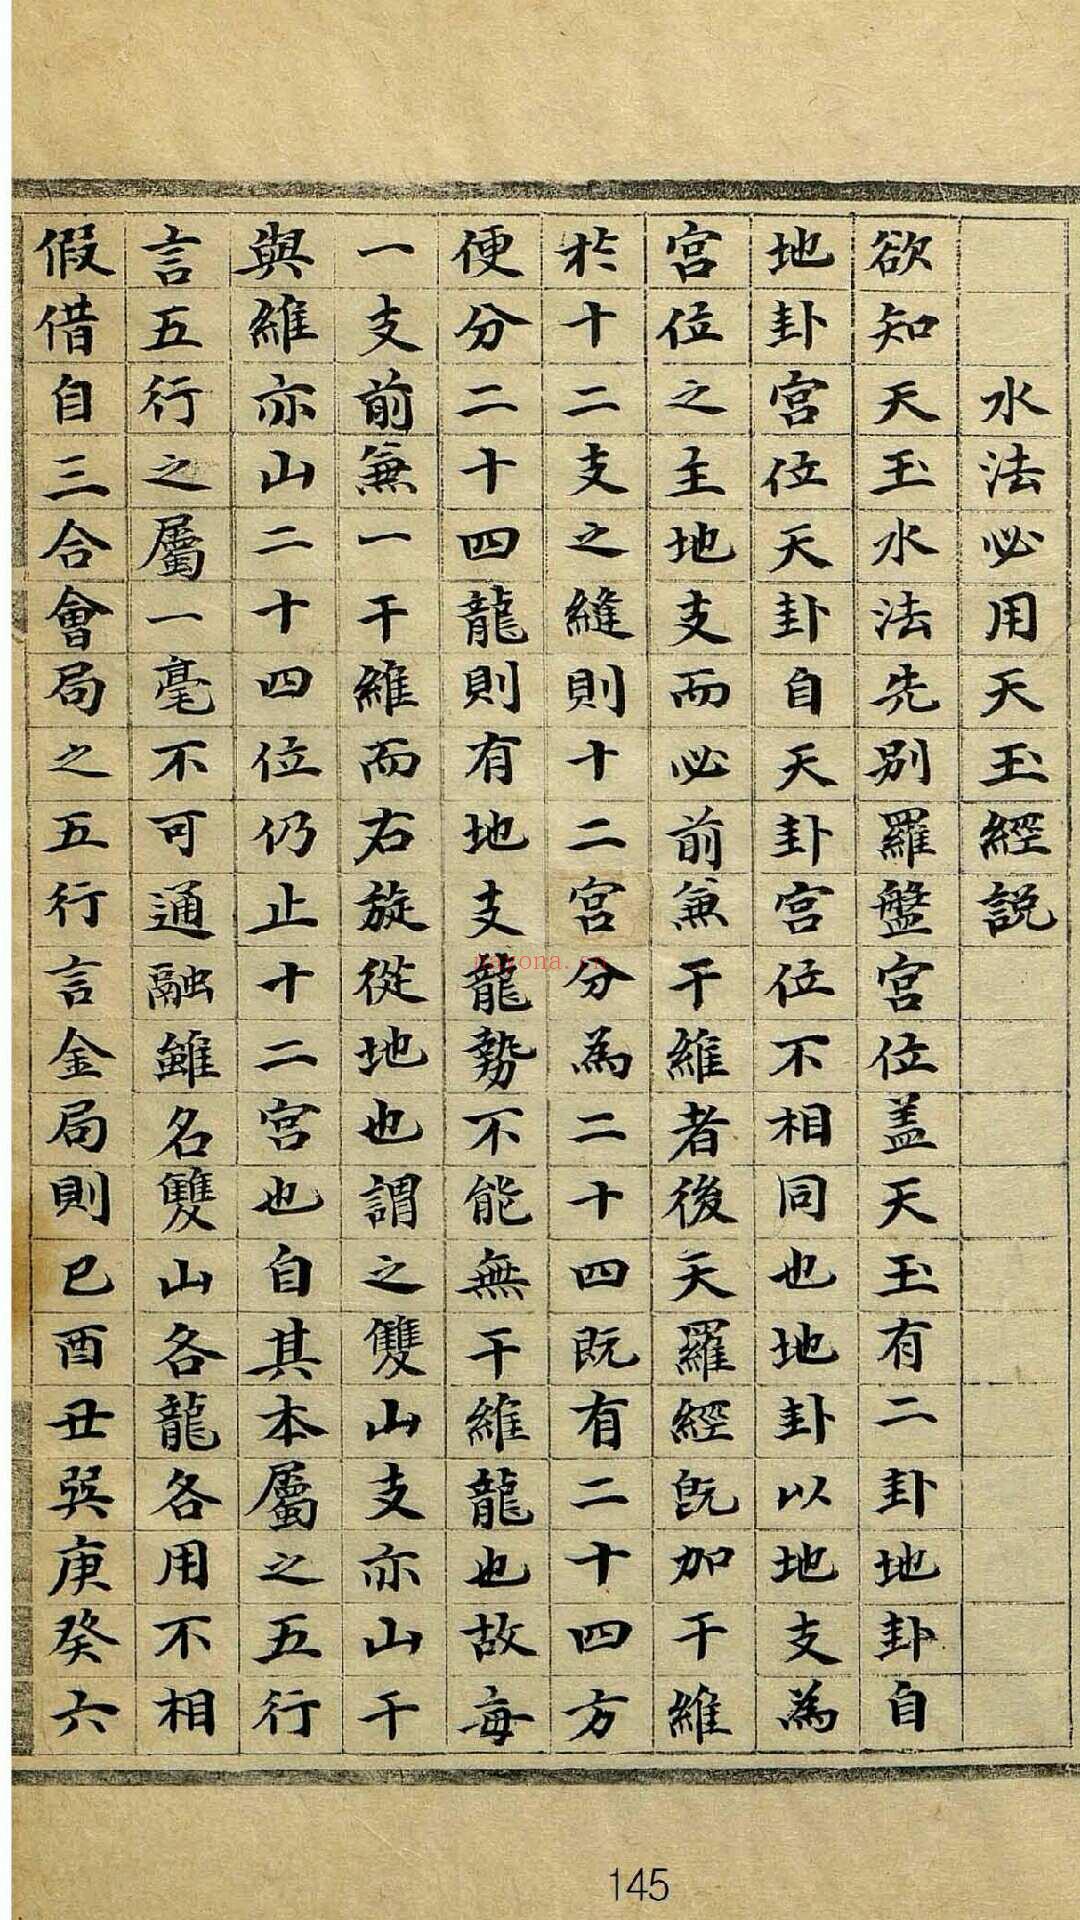 水法必用天玉經説
欲知天玉水法先别羅盤宫位盖天玉有二卦地卦自
地卦宫位天卦自天卦宫位不相同也地卦以地支為
宫位之主地支而必前兼干維者後天羅經既加干維
於十二支之縫則十二宫分為二十四既有二十四方
便分二十四龍則有地支龍勢不能無干維龍也故每
一支前兼一干維而右旋從地也謂之雙山支亦山干
與維亦山二十四位仍止十二宫也自其本屬之五行
言五行之屬一毫不可通融雖名雙山各龍各用不相
假借自三合會局之五行言金局則巳酉丑巽庚癸六
145